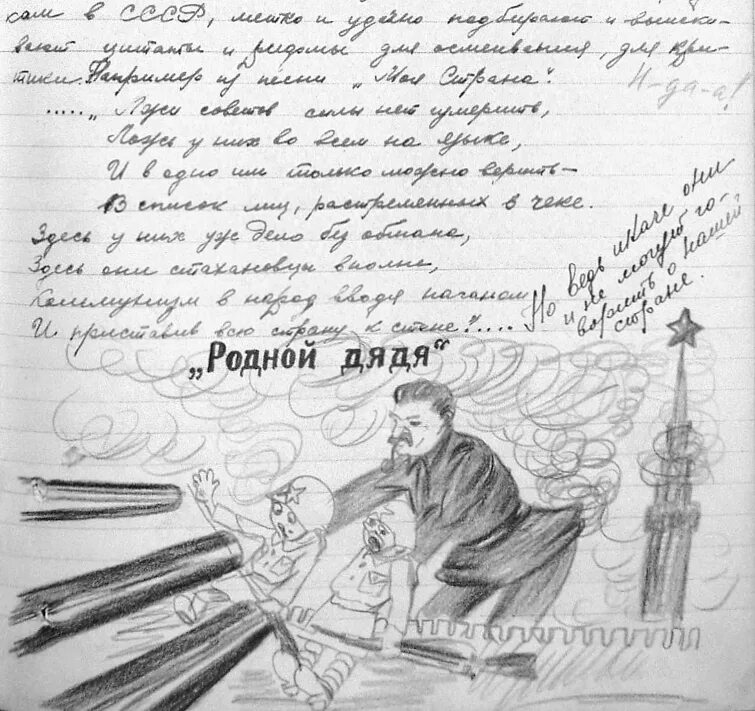 кам в СССР, метко и удачно подбирают и выиски-
вают цитаты и для осмеивания, для кри-
тики. Например из песни „Моя Страна“.
....." Лжи советов силы нет измерить,
Ложь у них во всем на языке,
И в одно им только можно верить –
В список лиц, растреленных в чеке.
Здесь у них уж дело без обмана,
Здесь они стахановцы вполне,
Коммунизм в народ вводя наганом
И приставив всю страну к стене!".....
Н-да-а!
Но ведь иначе они
и не могут го-
ворить о нашей
стране.
„Родной дядя“